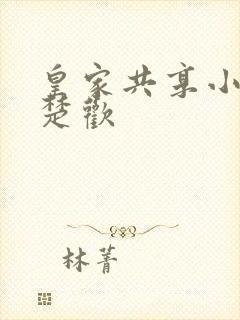 皇家共享小
楚歡
林菁